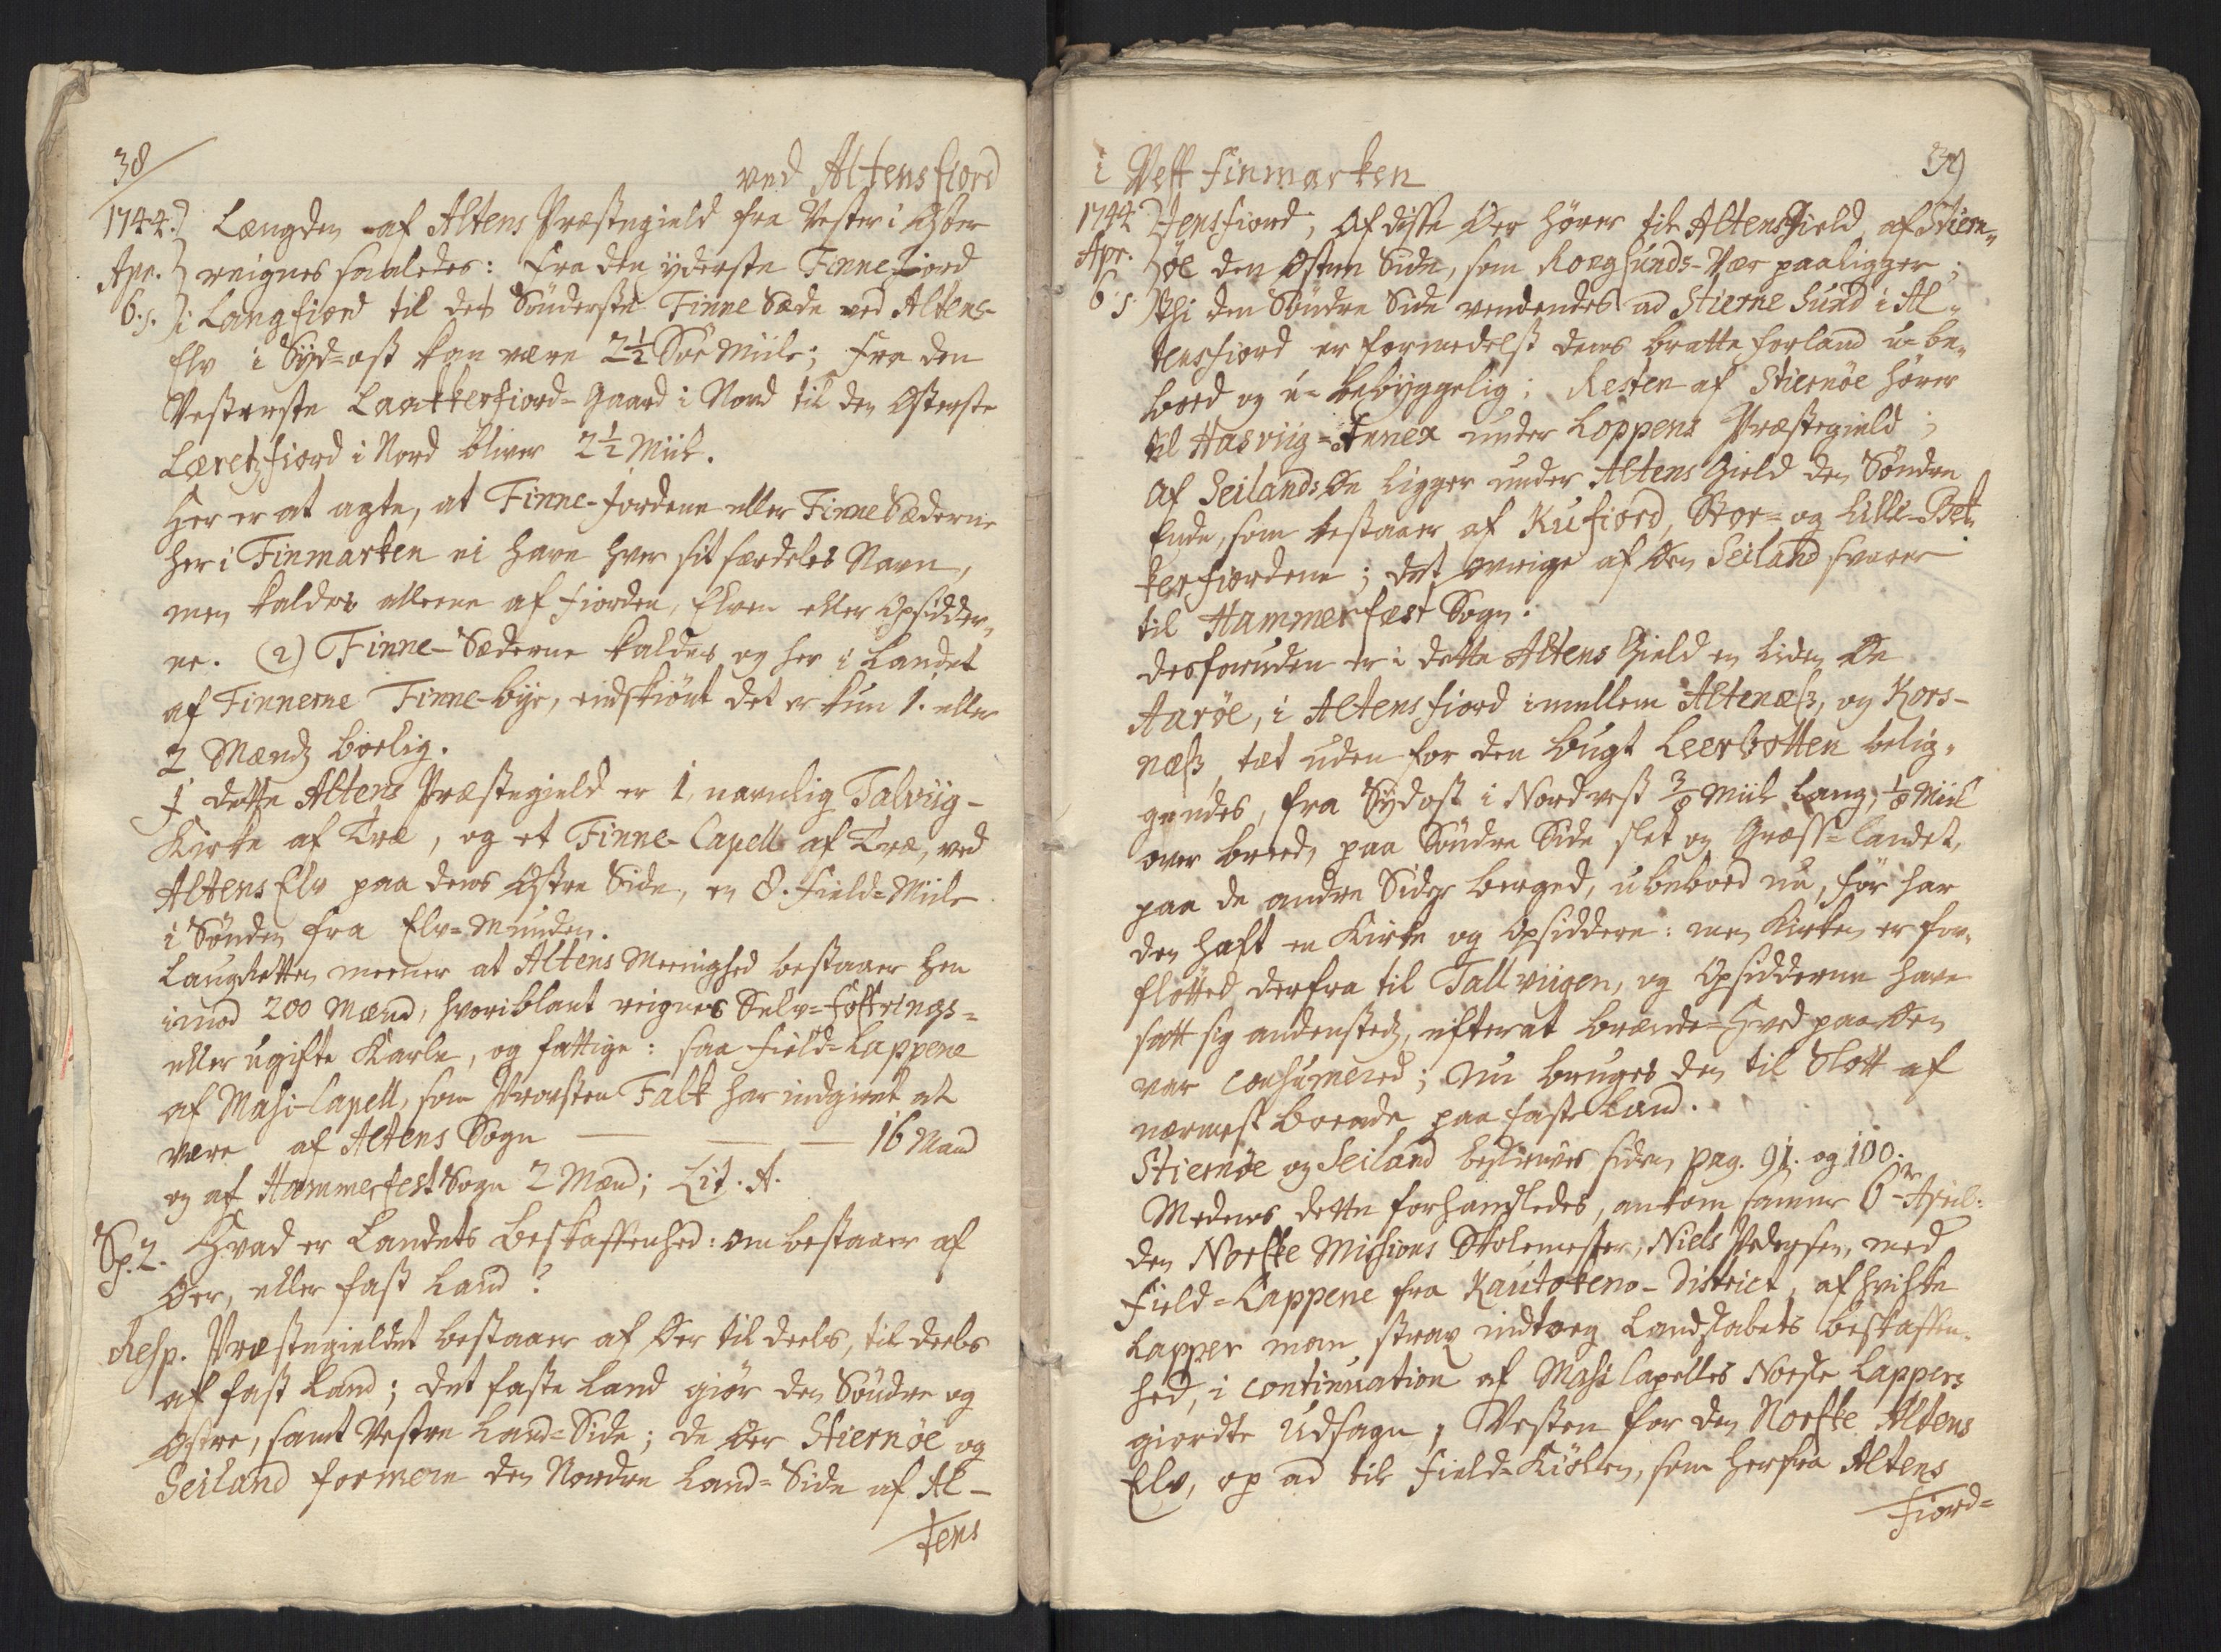 38
ved Altensfiord
1744. Længden af Altens Præstegield fra Vester i Öster
Apr. reignes saaledes: fra den yderste Finne Jord
6. s. i Langfiord til det Sönderste Finne Sæde ved Altens-
Elv i Syd-ost kan være 2½ Söe Miile; fra den
Vesterste Laakkerfiord-Gaard i Nord til den Österste
Læretzfiord i Nord bliver 2½ Miil.
Her er at agte, at Finne-Jordene eller Finne Sæderne
her i Finmarken ei have hver sit særdeles Navn,
men kaldes alleene af fiorden, Elven eller Opsidder„
ne. (2) Finne-Sæderne kaldes og her i Landet
af Finnerne Finne-bye, endskiönt det er kun 1. eller
2 Mændz boelig.
I dette Altens Præstegield er 1, navnlig Talviig-
Kirke af Træ, og et Finne-Capell af Træ, ved
Altens Elv paa dens Östre Side, en 8. Field-Miile
i Sönden fra Elv-Munden.
Laugretten meener at Altens Meenighed bestaaer hen
imod 200 Mænd, hvoriblant reignes Selv-Fostrings-
eller ugifte Karle, og fattige: saa Field-Lappene
af Masi-Capell, som Provsten Falk har indgivet at
være af Altens Sogn — — — 16 Mand
og af Hammerfest Sogn 2 Mænd; Lit. A.
Sp. 2. Hvad er Landets Beskaffenhed: om bestaaer af
Öer, eller fast Land?
Resp. Præstegieldet bestaaer af Öer til deels, til deels
af fast Land; det faste Land giör den Söndre og
Östre, samt Vestre Land-Side; de Öer Stiernöe og
Seiland formere den Nordre Land-Side af Al-
tens
i Vest Finmarken
39
1744 tensfiord; Af disse Öer hörer til Altens Gield af Stiern„
Apr. öe den Östre Side, som Rognsunds-Vær paaligger;
6. s. thi den Söndre Side vendendes ad Stierne Sund i Al„
tensfiord er formedelst dens bratte forland u-be„
boed og u-bebyggelig; Resten af Stiernöe hörer
til Hasviig-Annex under Loppens Præstegield;
Af Seilands Öe ligger under Altens Gield den Söndre
Ende, som bestaaer af Kufiord, Stor- og Lille-Bek„
kerfiordene; det övrige af Öen Seiland svarer
til Hammerfæst Sogn.
desforuden er i dette Altens Gield en liden Öe
Aaröe, i Altensfiord imellem Altenæss, og Kors-
næss, tæt uden for den bugt Leerbotten belig„
gendes, fra Sydost i Nordvest 3/8 Miil lang, 1/8 Miil
over breed, paa Söndre Side slet og Græss-landet,
paa de andre Sider berged, ubeboed nu, för har
den haft en Kirke og Opsiddere: men Kirken er for„
flötted derfra til Tallviigen, og Opsidderne have
satt sig andenstedz, efterat brænde-Hved paa Öen
var consumered; Nu bruges den til Slott af
nærmest boende paa faste Land.
Stiernöe og Seiland beskrives siden pag. 91. og 100.
Medens dette forhandledes, ankom samme 6te April:
den Norske Missions Skolemester, Niels Pedersen, med
Field-Lappene fra Kautokeno-District, af hvilke
Lapper man strax indtoeg Landskabets beskaffen„
hed, i continuation af Masi Capelles Norske Lappers
giordte Udsagn, Vesten for den Norske Altens
Elv, op ad til Field-Kiölen, som herfra Altens
Fiord-